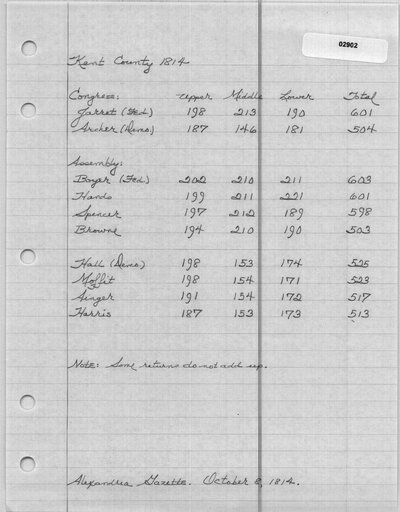 02902
Kent County 1814
Congress: Upper Middle Lower Total
Jarret (Fed.) 198 213 190 601
Archer (Demo.) 187 146 181 504
Assembly:
Boyer (Fed.) 202 210 211 603
Hands 199 211 221 601
Spencer 197 212 189 598
Browne 194 210 190 503
Hall (Demo.) 198 153 174 525
Moffit 198 154 171 523
Singer 191 154 172 517
Harris 187 153 173 513
Note: Some returns do not add up.
Alexandria Gazette. October 8, 1814.